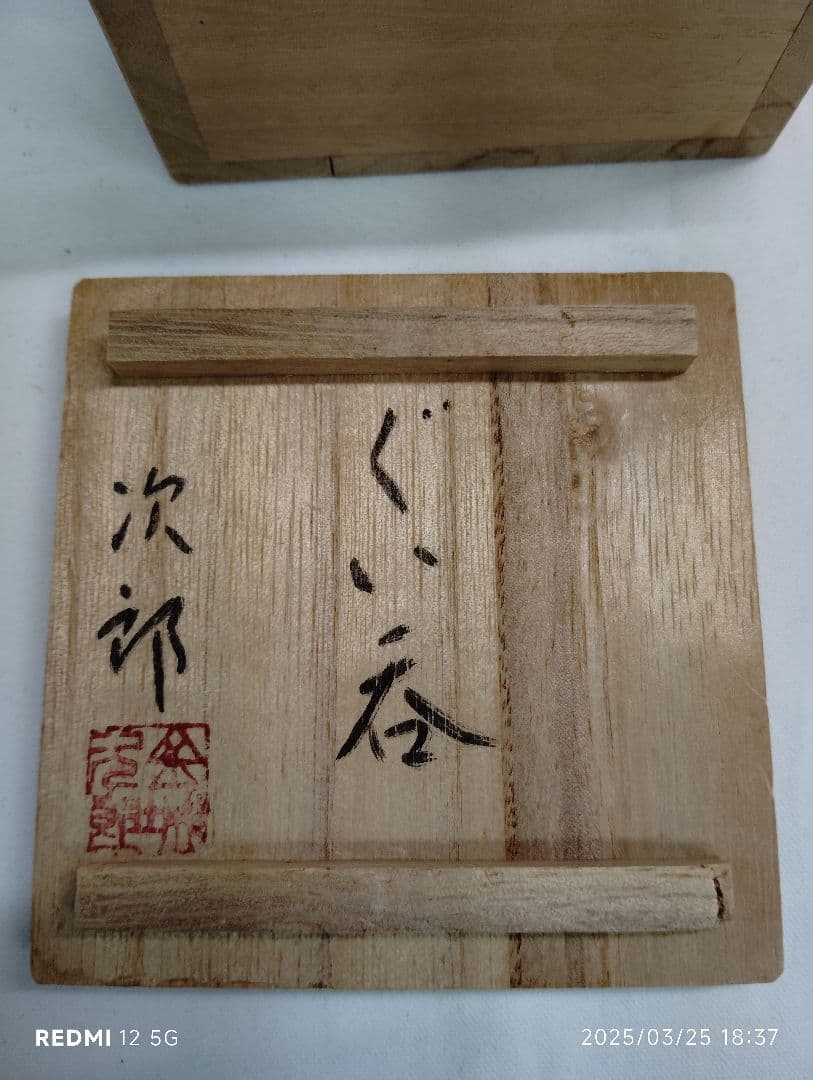 ぐい呑
次郎
REDMI 12 5G
2025/03/25 18:37